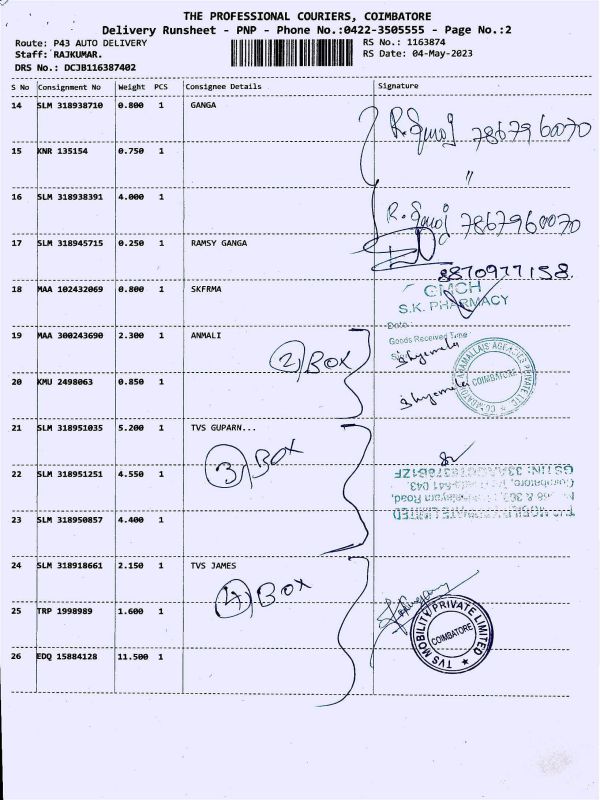 THE PROFESSIONAL COURIERS, COIMBATORE
Delivery Runsheet - PNP - Phone No.:0422-3505555 - Page No.:2
Route: P43 AUTO DELIVERY
Staff: RAJKUMAR.
DRS No.: DCJB116387402
RS No.: 1163874
RS Date: 04-May-2023
S No Consignment No Weight PCS Consignee Details Signature
14 SLM 318938710 0.800 1 GANGA
7867960070
15 KNR 135154 0.750 1
"
16 SLM 318938391 4.000 1
7867960070
17 SLM 318945715 0.250 1 RAMSY GANGA
8870977158.
18 MAA 102432069 0.800 1 SKFRMA
CMCH
S.K. PHARMACY
Date:
Goods Received Time
19 MAA 300243690 2.300 1 ANMALI
2) BOX
Shyemala
20 KMU 2498063 0.850 1
Shyemala
ANAMALLAIS AGENCIES PRIVATE LTD.
COIMBATORE
21 SLM 318951035 5.200 1 TVS GUPARN...
3) BOX
22 SLM 318951251 4.550 1
23 SLM 318950857 4.400 1
TVS MOBILITY PRIVATE LIMITED
24 SLM 318918661 2.150 1 TVS JAMES
4) BOX
25 TRP 1998989 1.600 1
TVS MOBILITY PRIVATE LIMITED
COIMBATORE
26 EDQ 15884128 11.500 1